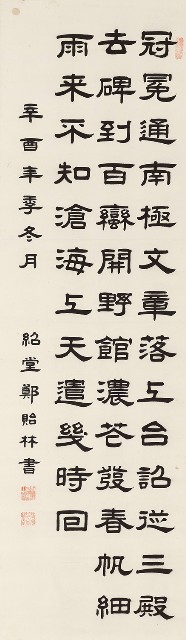 冠冕通南極文章落上台詔從三殿
去碑到百蠻開野館濃花發春帆細
雨来不知滄海上天遣幾時回
辛酉年季冬月 紹堂鄭貽林書